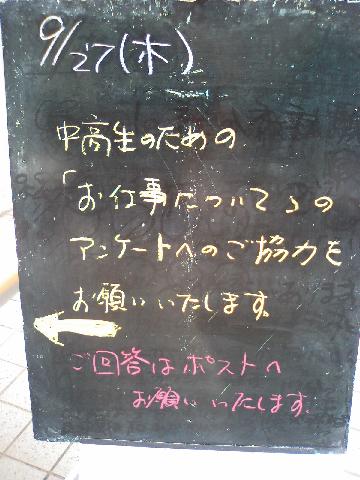 9/27(木)
中高生のための
「お仕事について」の
アンケートへのご協力を
お願いいたします。
ご回答はポストへ
お願いいたします。